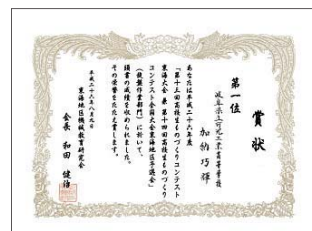 賞状
第一位
岐阜県立可児工業高等学校
加納 巧輝
あなたは平成二十六年度
「第十三回高校生ものづくりコンテスト
東海大会 兼 第十四回高校生ものづくり
コンテスト全国大会東海地区予選会」
(旋盤作業部門)に於いて、
頭書の成績を収められました。
その栄誉をたたえ賞します。
平成二十六年八月九日
東海地区機械教育研究会
会長 和田 健治